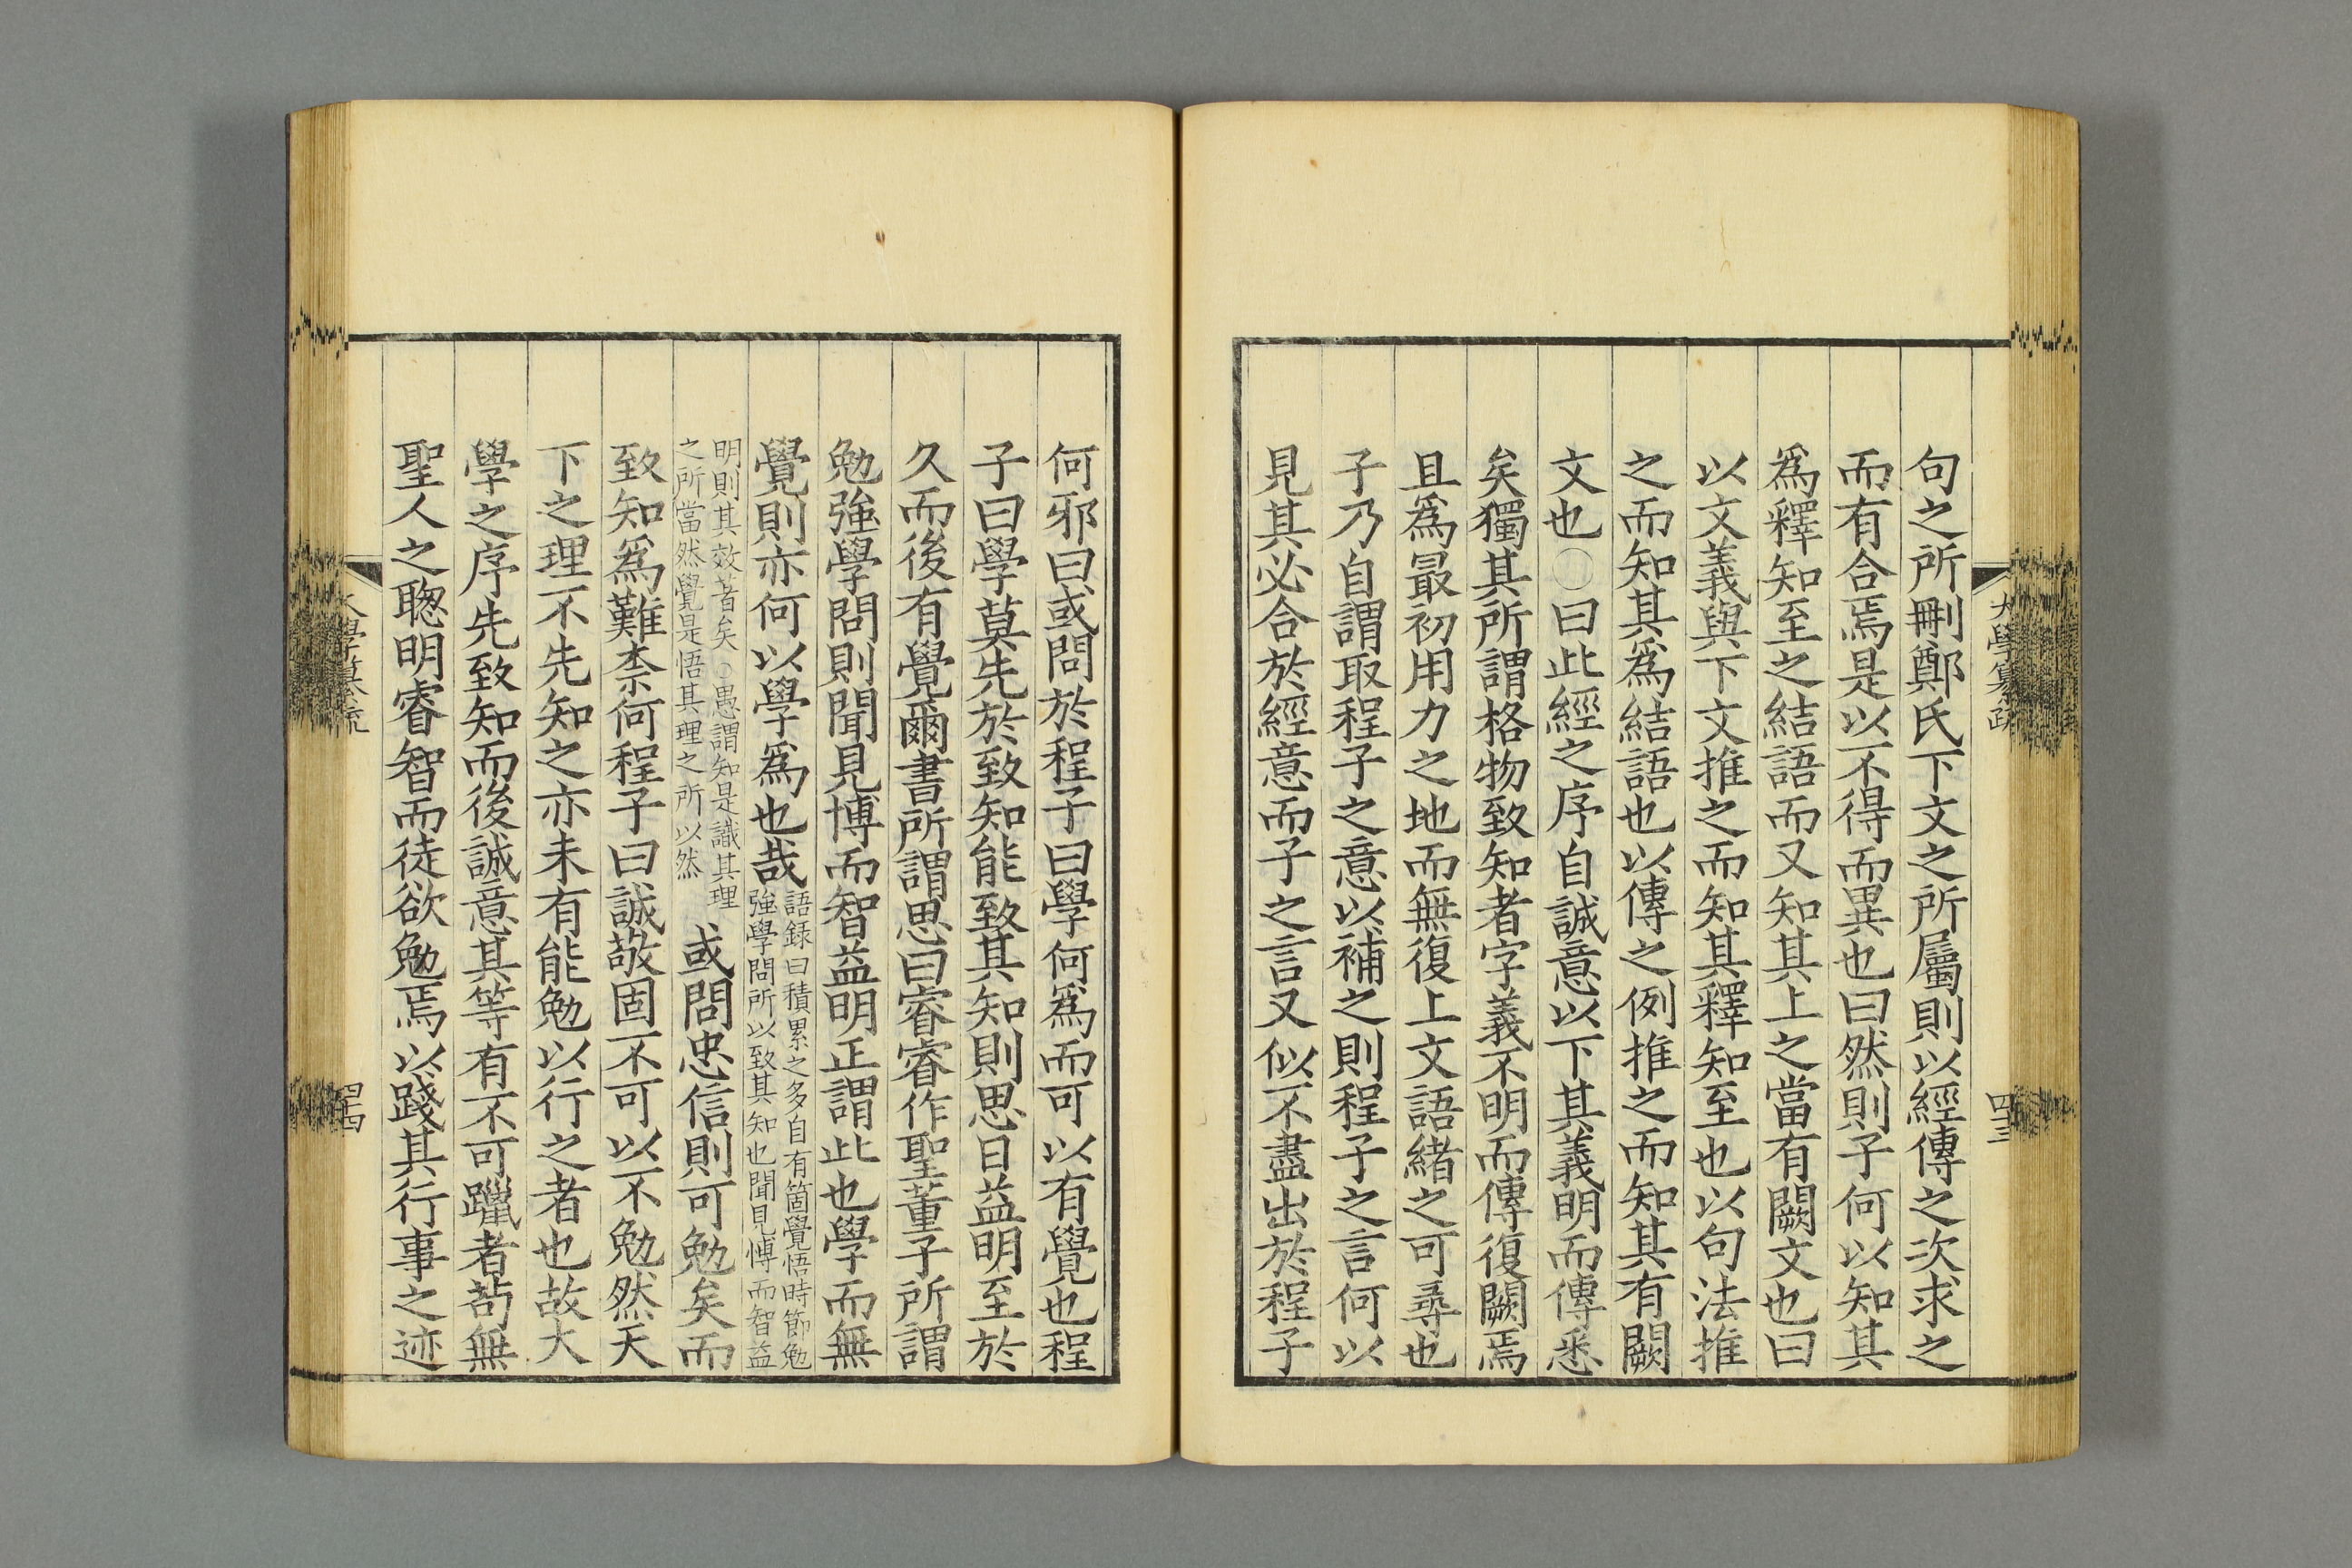 大學纂疏
四十三
句之所刪鄭氏下文之所屬則以經傳之次求之
而有合焉是以不得而異也曰然則子何以知其
爲釋知至之結語而又知其上之當有闕文也曰
以文義與下文推之而知其釋知至也以句法推
之而知其爲結語也以傳之例推之而知其有闕
文也○曰此經之序自誠意以下其義明而傳悉
矣獨其所謂格物致知者字義不明而傳復闕焉
且爲最初用力之地而無復上文語緒之可尋也
子乃自謂取程子之意以補之則程子之言何以
見其必合於經意而子之言又似不盡出於程子
何邪曰或問於程子曰學何爲而可以有覺也程
子曰學莫先於致知能致其知則思日益明至於
久而後有覺爾書所謂思曰睿睿作聖董子所謂
勉強學問則聞見博而智益明正謂此也學而無
覺則亦何以學爲也哉
語録曰積累之多自有箇覺悟時節勉
強學問所以致其知也聞見愽而智益
明則其效著矣○愚謂知是識其理
之所當然覺是悟其理之所以然
或問忠信則可勉矣而
致知爲難柰何程子曰誠敬固不可以不勉然天
下之理不先知之亦未有能勉以行之者也故大
學之序先致知而後誠意其等有不可躐者茍無
聖人之聦明睿智而徒欲勉焉以踐其行事之迹
大學纂疏
四十四